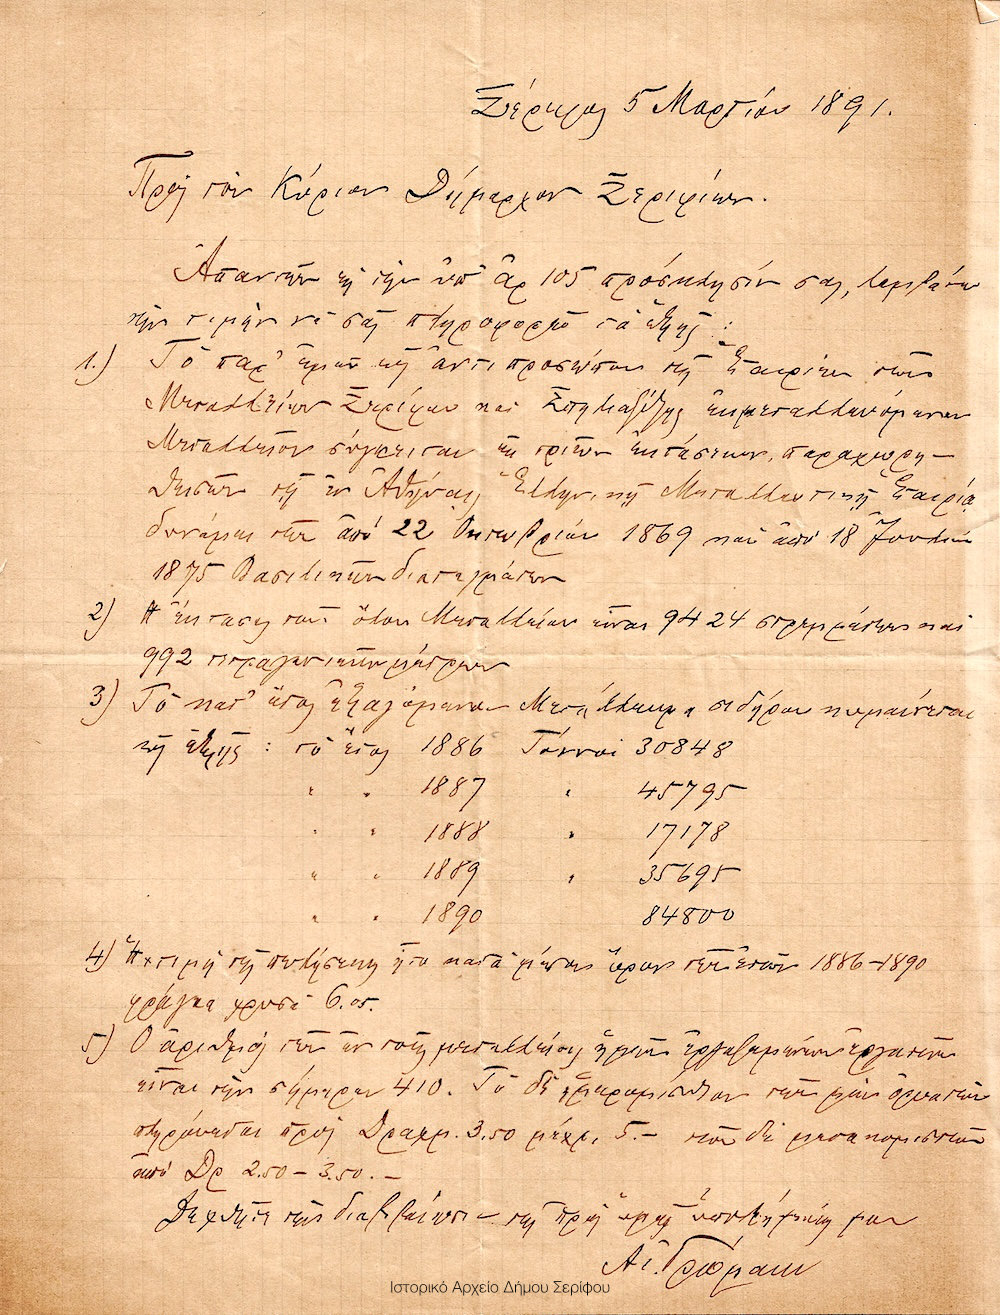 Σέριφος 5 Μαρτίου 1891.
Πρὸς τὸν Κύριον Δήμαρχον Σεριφίων.
Ἀπαντῶν εἰς τὴν ὑπ' ἀρ 105 πρόσκλησίν σας, λαμβάνω
τὴν τιμὴν νὰ σᾶς πληροφορήσω τὰ ἑξῆς:
1.) Τὸ παρ' ἐμοῦ ὡς ἀντιπροσώπου τῆς Ἑταιρίας τῶν
Μεταλλείων Σερίφου καὶ Σπηλιαζέζης ἐκμεταλλευόμενον
Μεταλλεῖον σύγκειται ἐκ τριῶν ἐκτάσεων, παραχωρη-
θεισῶν τῇ ἐν Ἀθήναις Ἑλληνικῇ Μεταλλευτικῇ Ἑταιρίᾳ
δυνάμει τῶν ἀπὸ 22 Ὀκτωβρίου 1869 καὶ ἀπὸ 18 Ἰουνίου
1875 Βασιλικῶν διαταγμάτων
2) Ἡ ἔκτασις τοῦ ὅλου Μεταλλείου εἶναι 9424 στρεμμάτων καὶ
992 τετραγωνικῶν μέτρων
3) Τὸ κατ' ἔτος ἐξαγόμενον Μετάλλευμα σιδήρου κυμαίνεται
ὡς ἑξῆς: τὸ ἔτος 1886 Τόννοι 30848
" " 1887 " 45795
" " 1888 " 17178
" " 1889 " 35695
" " 1890 84800
4) Ἡ τιμὴ τῆς πωλήσεως ἦτο κατὰ μέσον ὅρον τῶν ἐτῶν 1886-1890
φράγκα χρυσᾶ 6.05.
5) Ὁ ἀριθμὸς τῶν ἐν τοῖς μεταλλείοις ἡμῶν ἐργαζομένων ἐργατῶν
εἶναι τὴν σήμερον 410. Τὸ δὲ ἡμερομίσθιον τῶν μὲν
πληρόνεται πρὸς Δραχμ. 3.50 μέχρι 5.- τῶν δὲ
ἀπὸ Δρ 2.50 - 3.50. -
Δεχθῆτε τὴν διαβεβαίωσιν τῆς πρὸς ὑμᾶς ὑπολήψεώς μου
Αἰ. Γρώμαν
Ιστορικό Αρχείο Δήμου Σερίφου